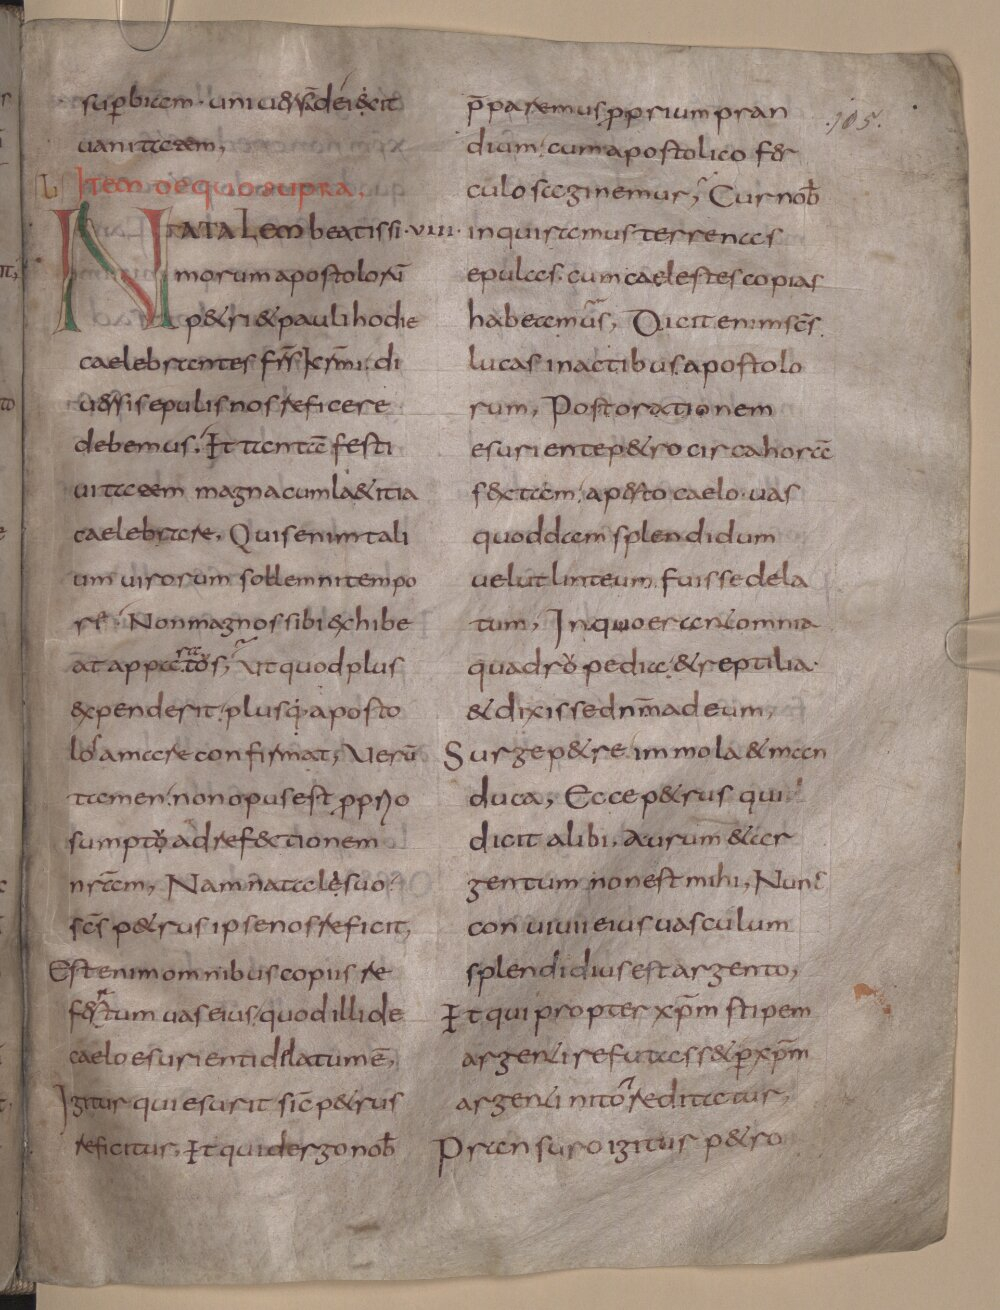 .105.
sup̄biam · universa dei dicit
vanitatem,
L Item de quo supra.
NATALem beatissi · VIII ·
morum apostoloru̅
petri et pauli hodie
caelebrantes fr̄s k̄rmi. di
versis epulis nos reficere
debemus. Et tanta̅ festi
vitatem magna cum laetitia
caelebrare. Quis enim tali
um virorum sollemni tempo
re. Non magnos sibi exhibe
at apparatos, Ut quod plus
expenderit. plus q̇ aposto
los amare confirmat, Veru̅
tamen. non opus est p̱prio
sumptu ad refectionem
nr̄am, Nam natale suo
sc̄s petrus ipse nos reficit,
Est enim omnibus copiis re
fertum vas eius. quod illi de
caelo esurienti delatum ē,
Igitur qui esurit sic̄ petrus
reficitur. Et quid ergo nob̄
p̄paremus. p̱prium pran
dium. cum apostolico fer
culo saginemur, Cur nob̄
inquiramus terrenas
epulas. cum caelestes copias
habeamus, Dicit enim sc̄s
lucas in actibus apostolo
rum, Post orationem
esuriente petro circa hora̅
sextam. aperto caelo. vas
quoddam splendidum
velut linteum. fuisse dela
tum, In quo erant omnia
quadrupedia. et reptilia.
et dixisse dn̄m ad eum,
Surge petre. immola et man
duca, Ecce petrus qui
dicit alibi, Aurum et ar
gentum non est mihi, Nunc
convivii eius vasculum
splendidius est argento,
Et qui propter xp̄m stipem
argenti refutasset. p̱ xp̄m
argenti nitore ditatur,
Pransuro igitur petro